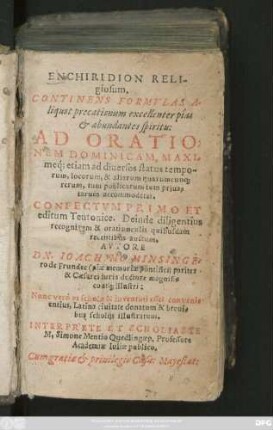 ENCHIRIDION RELI-
giosum,
CONTINENS FORMVLAS A-
liquot precationum excellenter pias
& abundantes spiritu:
AD ORATIO-
NEM DOMINICAM, MAXI-
meq; etiam ad diuersos status tempo-
rum, locorum, & aliarum quarumcunq;
rerum, tum publicarum tum priua-
tarum accommodatas.
CONFECTVM PRIMO ET
editum Teutonice. Deinde diligentius
recognitum & orationibus quibusdam
recentibus auctum,
AVTORE
DN. IOACHIMO MINSINGE-
ro de Frundec
& Cæsarei iuris doctore magnifico
illustri:
Nunc verò
Latina ciuitate donatum & breui-
bus scholijs illustratum,
INTERPRETE ET SCHOLIASTE
M. Simone Mentio Quedlingio, Professore
Academiæ Iuliæ publico.
Cum gratia & priuilegio Cæsar: Maiestat: